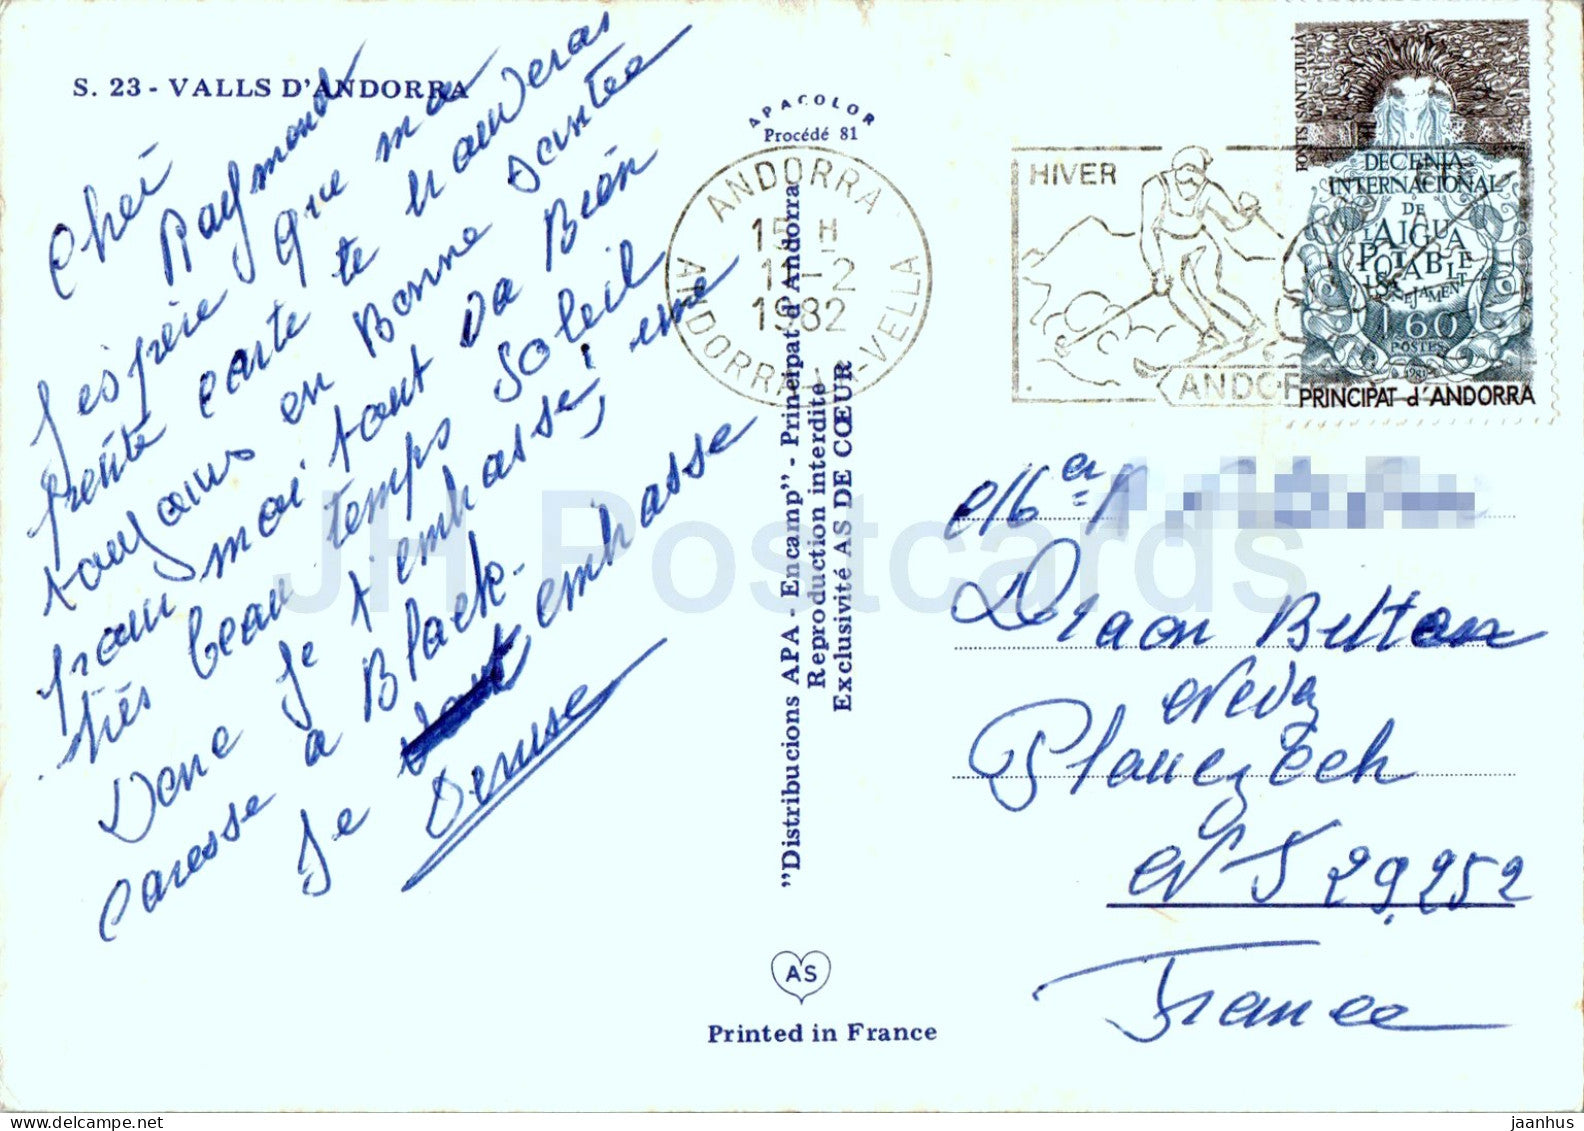 S. 23 - VALLS D'ANDORRA
Cheri
Raymond
J espère que ma
petite carte te trouveras
toujours en Bonne santée
pour moi tout va Bien
très beau temps Soleil
Donc je t'embrasse, une
caresse a Black-
Je embrasse
Denise
APACOLOR
Procédé 81
"Distribucions APA - Encamp" - Principat d'Andorra
Reproduction interdite
Exclusivité AS DE CŒUR
AS
Printed in France
ANDORRA
15 H
11-2
1982
ANDORRA-LA-VELLA
HIVER
ANDOR
PONTS SANT JULIÀ
DECENIA
INTERNACIONAL
DE
L'AIGUA
POTABLE
I SANEJAMENT
1,60
POSTES
1981
PRINCIPAT d'ANDORRA
Plouezoch
29.252
France
JH Postcards
jaanhus @ www.hippostcard.com